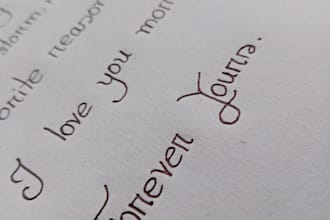 storm.
orite reason
I love you mor
Forever Yours.